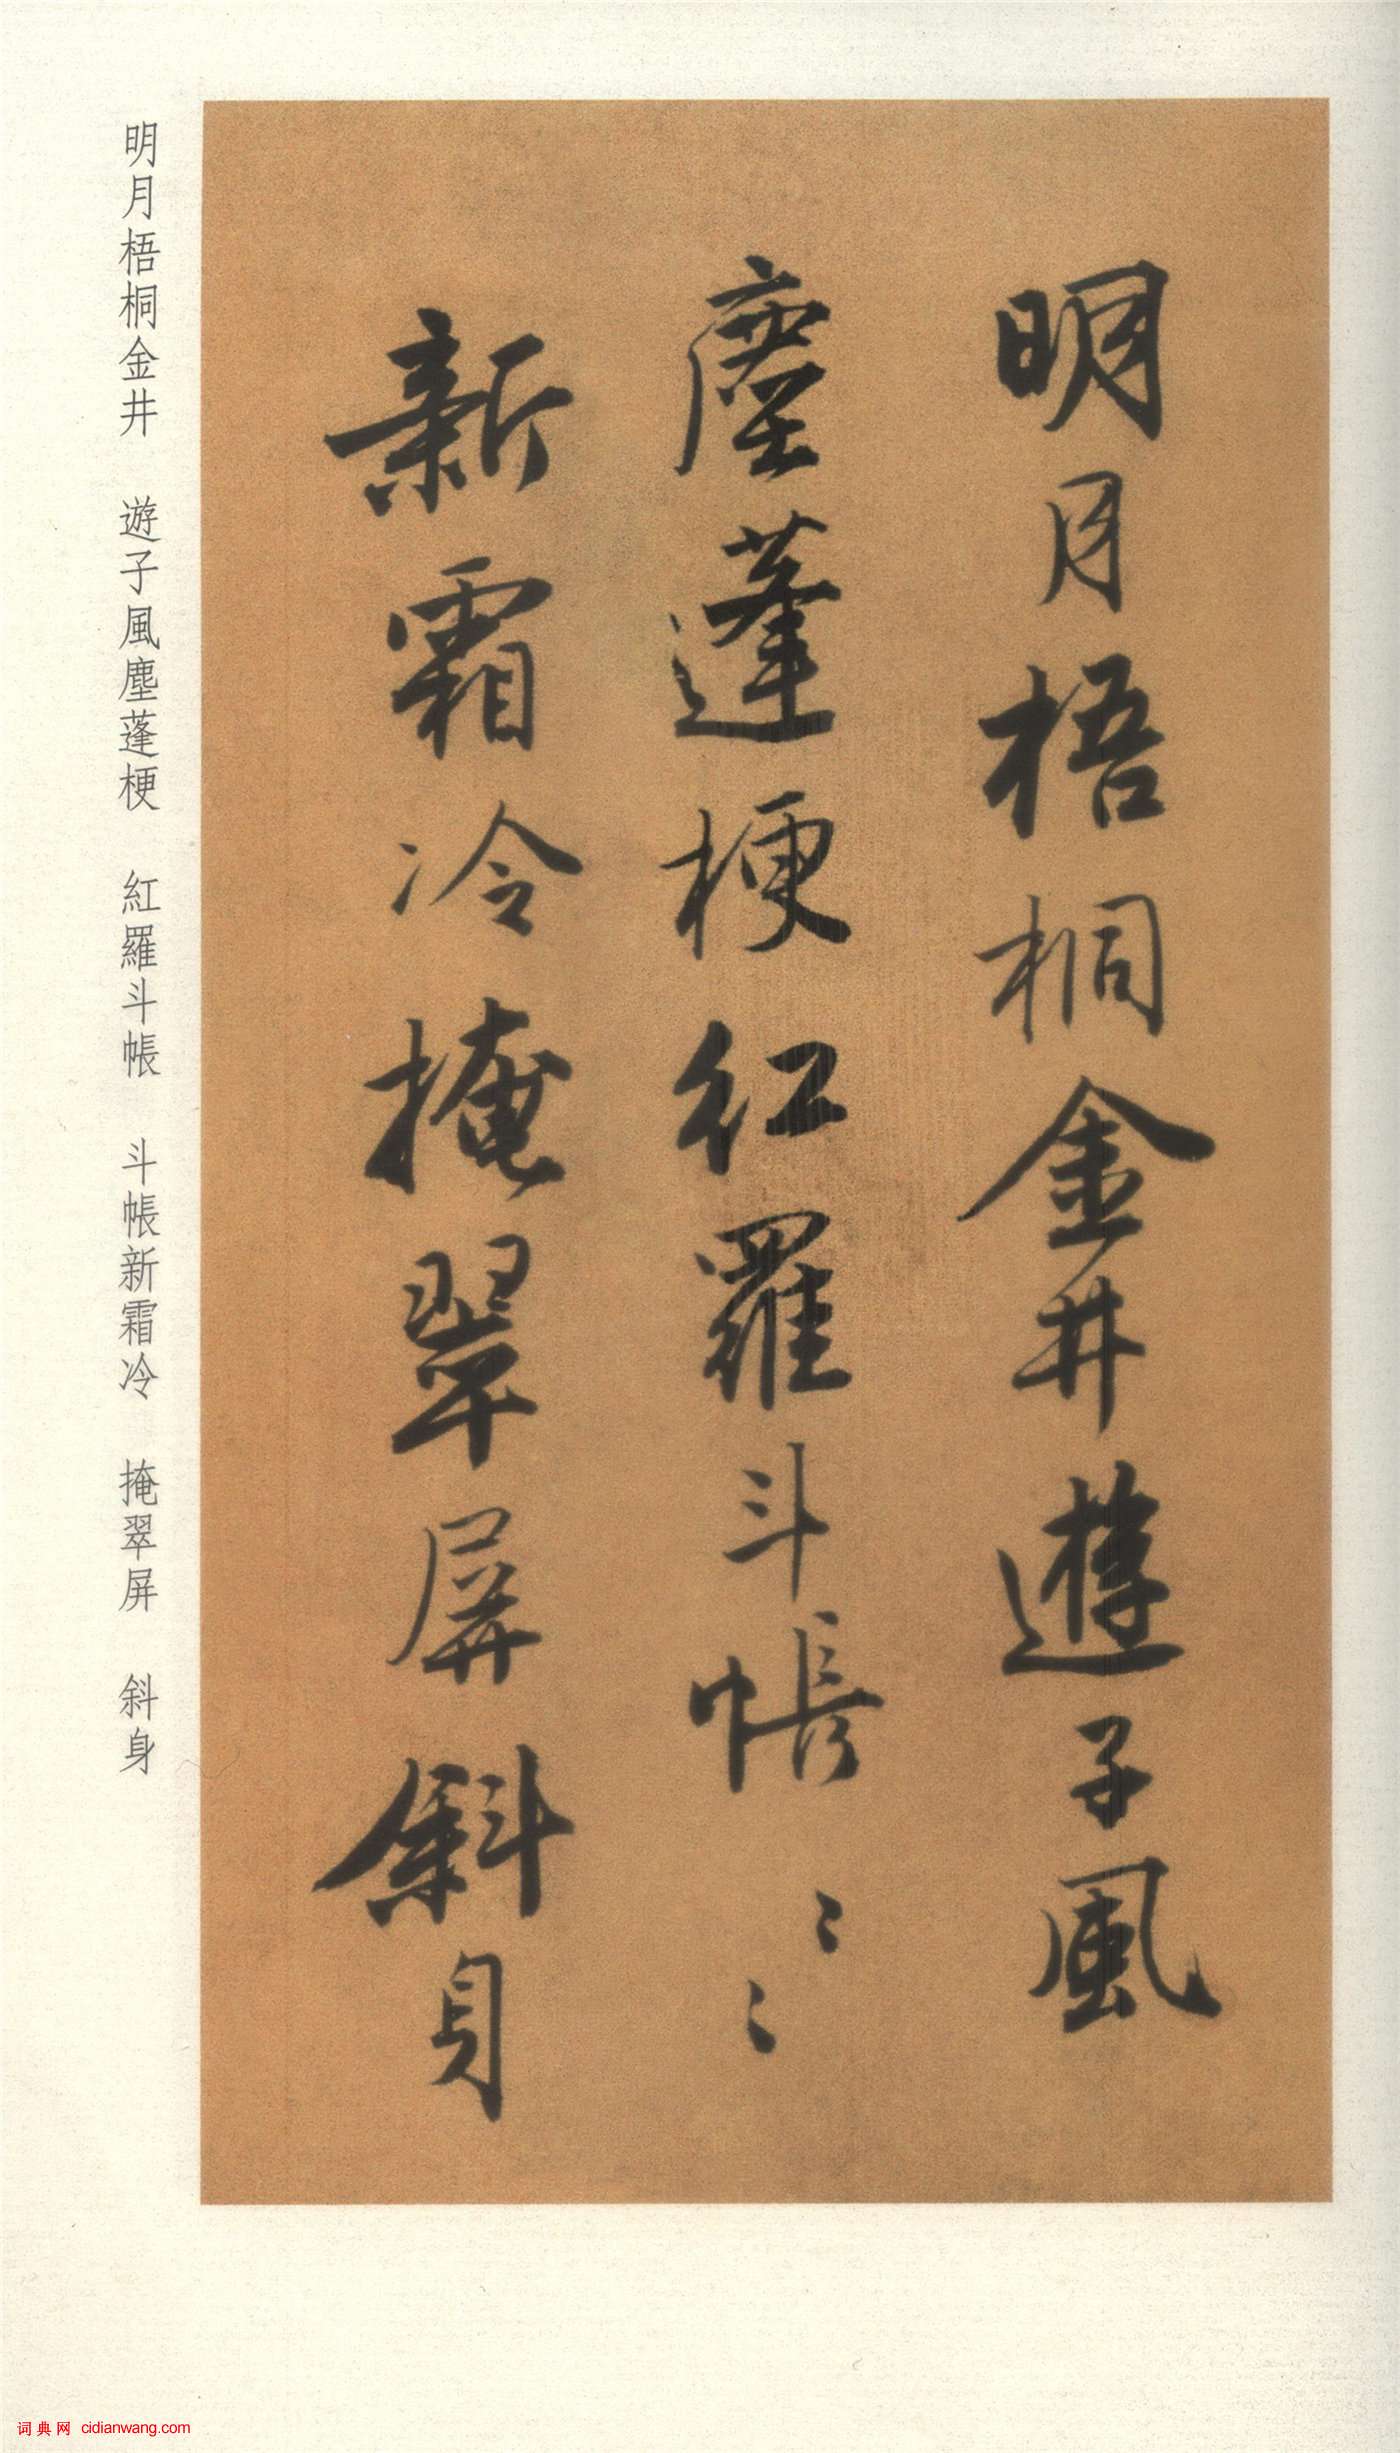 明月梧桐金井遊子風
塵蓬梗紅羅斗帳〻〻
新霜冷掩翠屏斜身
明月梧桐金井　遊子風塵蓬梗　紅羅斗帳　斗帳新霜冷　掩翠屏　斜身
词典网 cidianwang.com